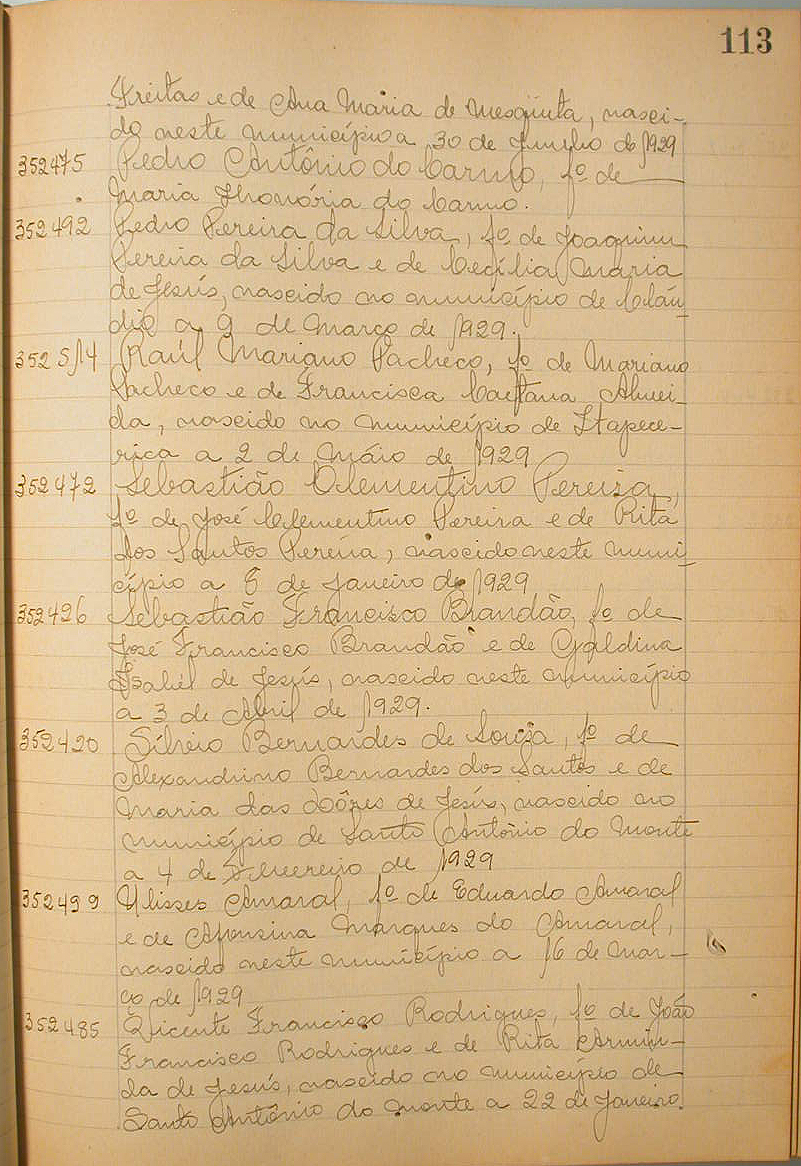 113
Freitas e de Ana Maria de Mesquita, nasci-
do neste município a 30 de Junho de 1929
352475 Pedro Antônio do Carmo, fº de
Maria Honória do Carmo.
352492 Pedro Pereira da Silva, fº de Joaquim
Pereira da Silva e de Cecília Maria
de Jesús, nascido no município de Cláu-
dio a 9 de Março de 1929.
352514 Raúl Mariano Pacheco, fº de Mariano
Pacheco e de Francisca Caetana Almei-
da, nascido no município de Itapece-
rica a 2 de Máio de 1929
352472 Sebastião Clementino Pereira,
fº de José Clementino Pereira e de Rita
dos Santos Pereira, nascido neste muni-
cípio a 8 de Janeiro de 1929
352426 Sebastião Francisco Brandão, fº de
José Francisco Brandão e de Galdina
Isabél de Jesús, nascido neste município
a 3 de Abril de 1929.
352420 Sílvio Bernardes de Souza, fº de
Alexandrino Bernardes dos Santos e de
Maria das Dôres de Jesús, nascido no
município de Santo Antônio do Monte
a 4 de Fevereiro de 1929
352499 Ulisses Amaral, fº de Eduardo Amaral
e de Afonsina Marques do Amaral,
nascido neste município a 16 de Mar-
ço de 1929
352485 Vicente Francisco Rodrigues, fº de João
Francisco Rodrigues e de Rita Armin-
da de Jesús, nascido no município de
Santo Antônio do Monte a 22 de Janeiro